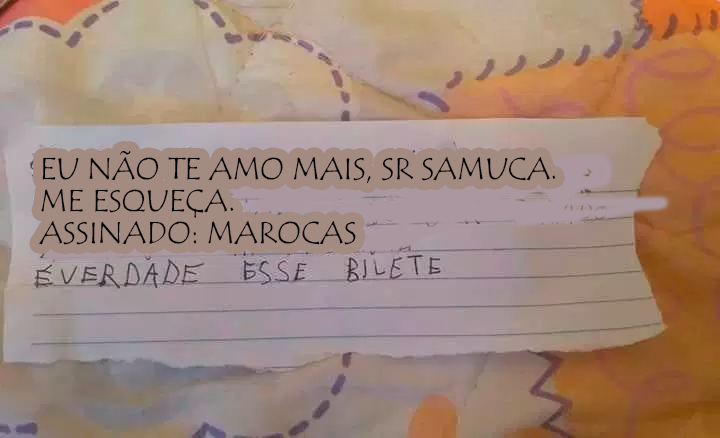 EU NÃO TE AMO MAIS, SR SAMUCA.
ME ESQUEÇA.
ASSINADO: MAROCAS
ÉVERDADE ESSE BILETE